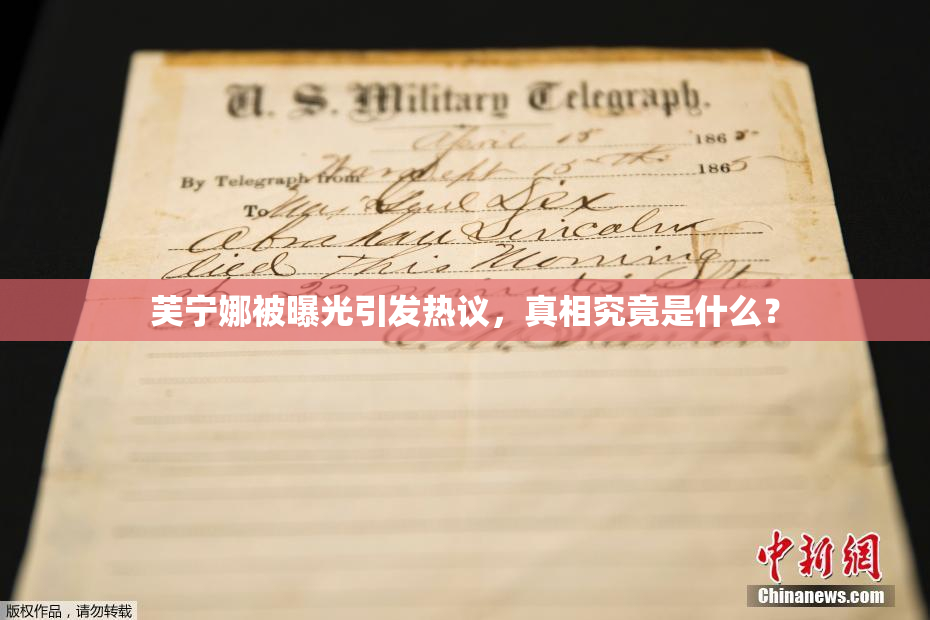 U. S. Military Telegraph.
April 15 1865
By Telegraph from War Dept 15th 1865
To Maj Genl Dix
Abraham Lincoln
died this Morning
at 22 minutes after
芙宁娜被曝光引发热议，真相究竟是什么？
E. M. Stanton
中新网
Chinanews.com
版权作品，请勿转载